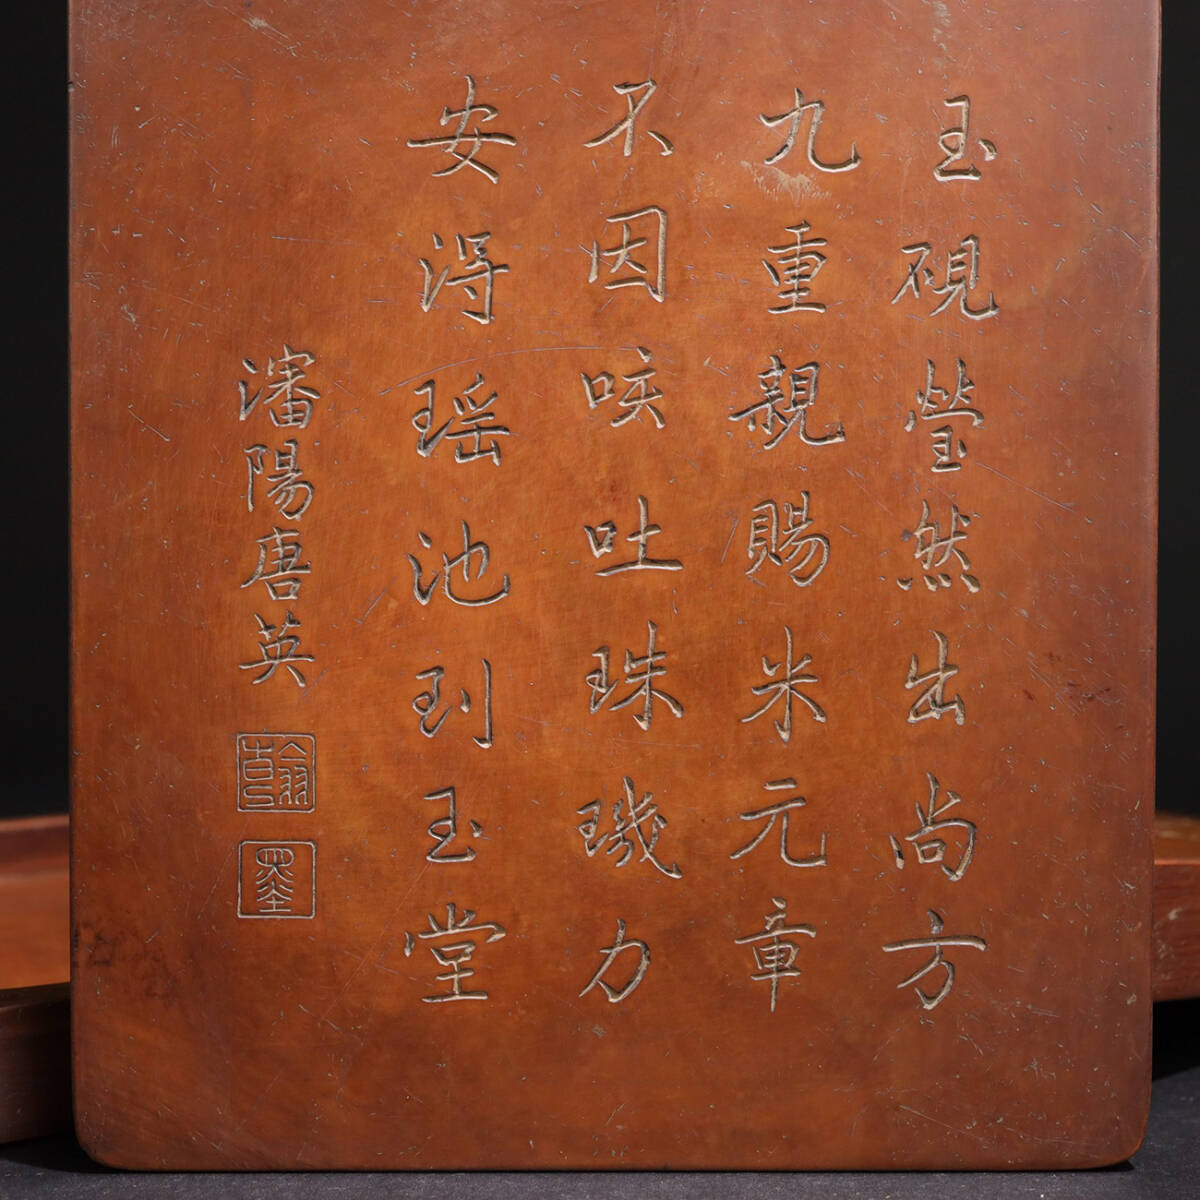 玉硯瑩然出尚方
九重親賜米元章
不因咳吐珠璣力
安得瑶池到玉堂
瀋陽唐英
翰墨